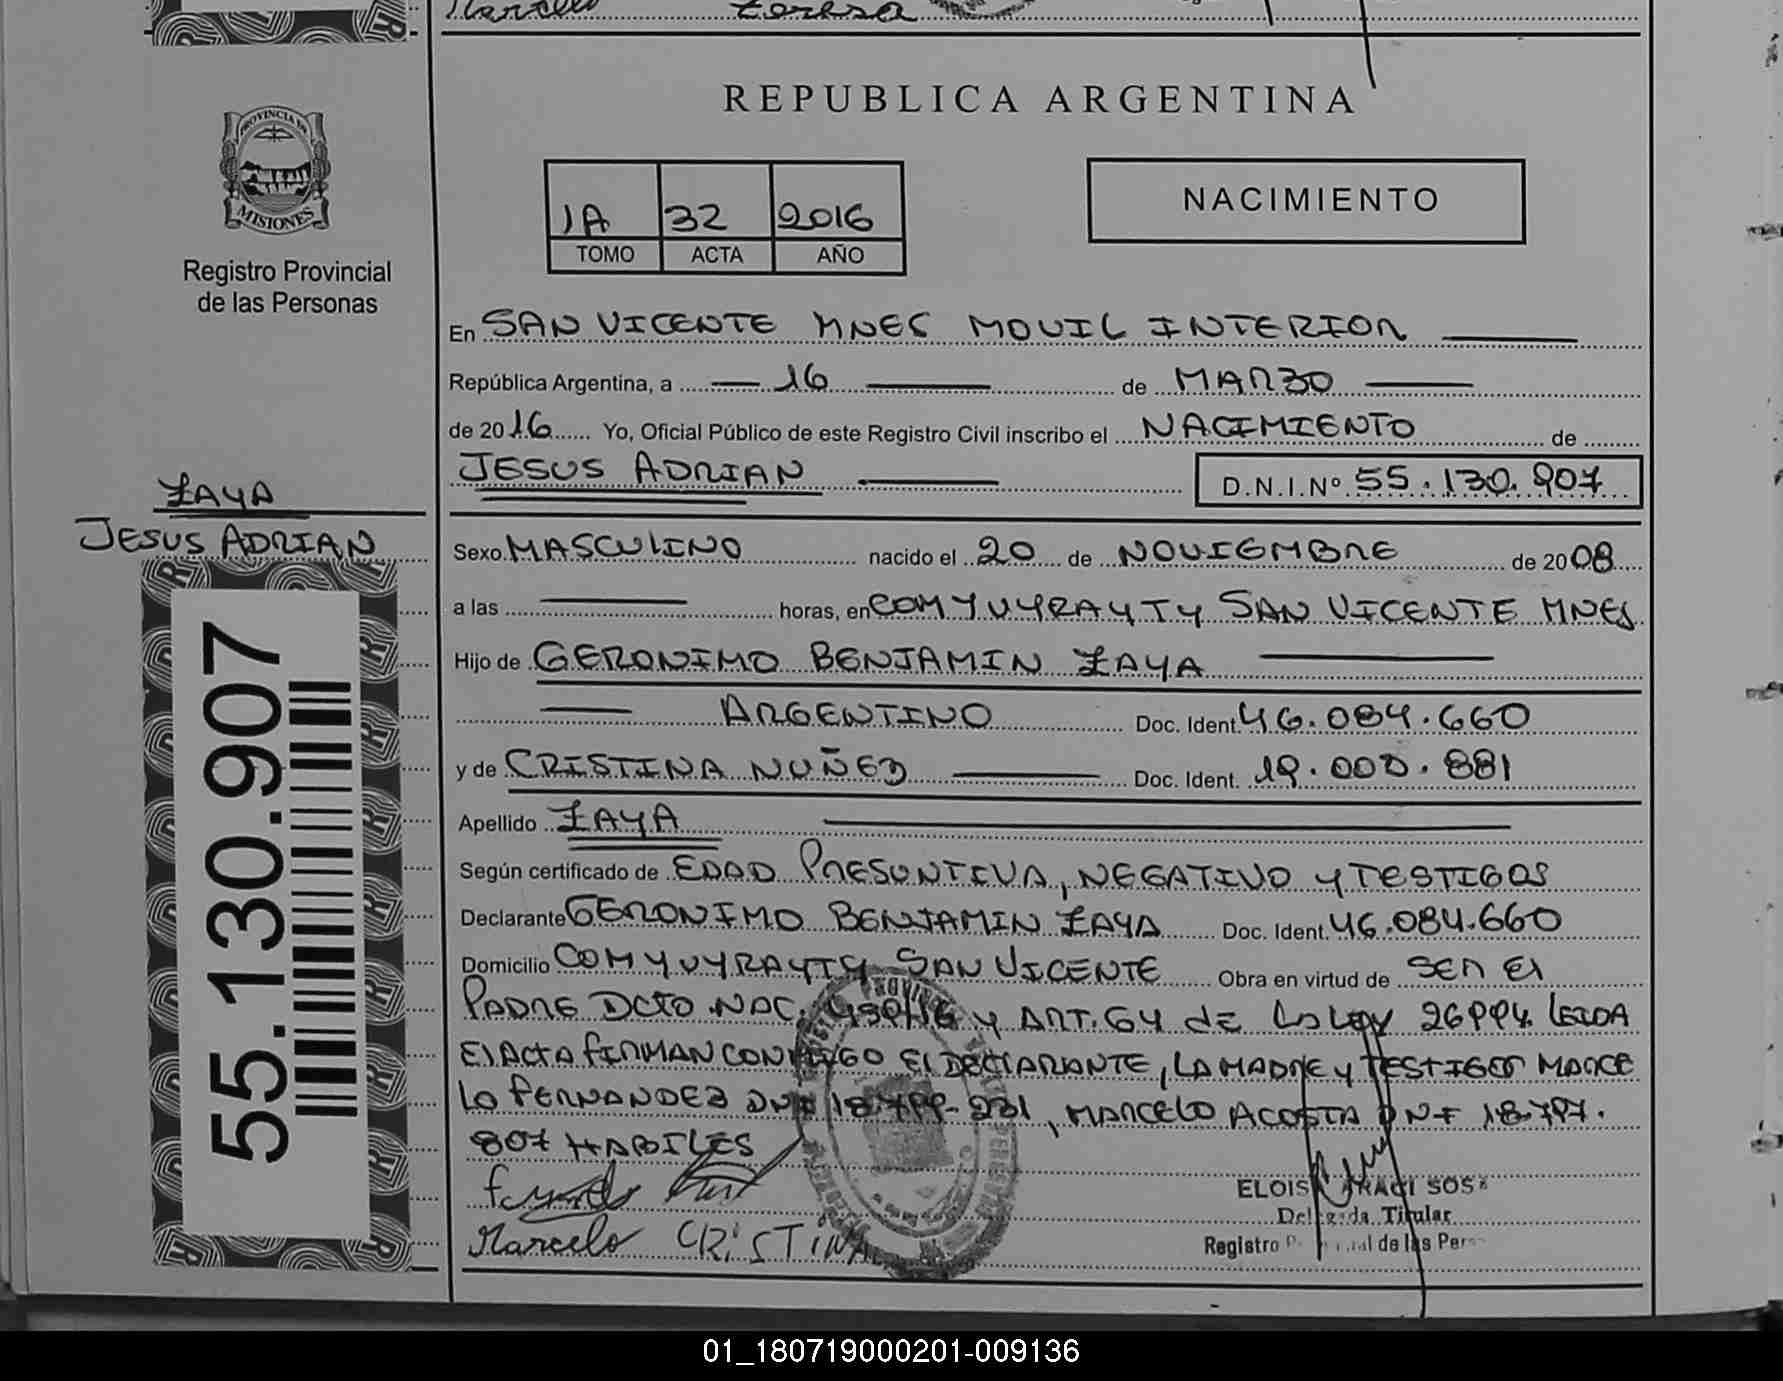 Marcelo teresa
REPUBLICA ARGENTINA
PROVINCIA DE
MISIONES
Registro Provincial
de las Personas
1A 32 2016
TOMO ACTA AÑO
NACIMIENTO
En SAN VICENTE MNES MOVIL INTERIOR
República Argentina, a 16 de MARZO
de 2016 Yo, Oficial Público de este Registro Civil inscribo el NACIMIENTO de
JESUS ADRIAN D.N.I.Nº 55.130.907
ZAYA
JESUS ADRIAN
55.130.907
Sexo MASCULINO nacido el 20 de NOVIEMBRE de 2008
a las horas, en COM YVYRAYTY SAN VICENTE MNES
Hijo de GERONIMO BENJAMIN ZAYA
ARGENTINO Doc. Ident. 46.084.660
y de CRISTINA NUÑEZ Doc. Ident. 19.000.881
Apellido ZAYA
Según certificado de EDAD PRESUNTIVA, NEGATIVO Y TESTIGOS
Declarante GERONIMO BENJAMIN ZAYA Doc. Ident. 46.084.660
Domicilio COM YVYRAYTY SAN VICENTE Obra en virtud de SER El
PADRE DCTO NAC. Y ART. 64 de La Ley 26994. LEIDA
El ACTA FIRMAN CONMIGO El DECLARANTE, LA MADRE Y TESTIGOS MARCE
LO FERNANDEZ DNI 18.799.231, MARCELO ACOSTA DNI 18.797.
807 HABILES
Marcelo CRiSTiNA
Titular
Registro de las Pers
01_180719000201-009136